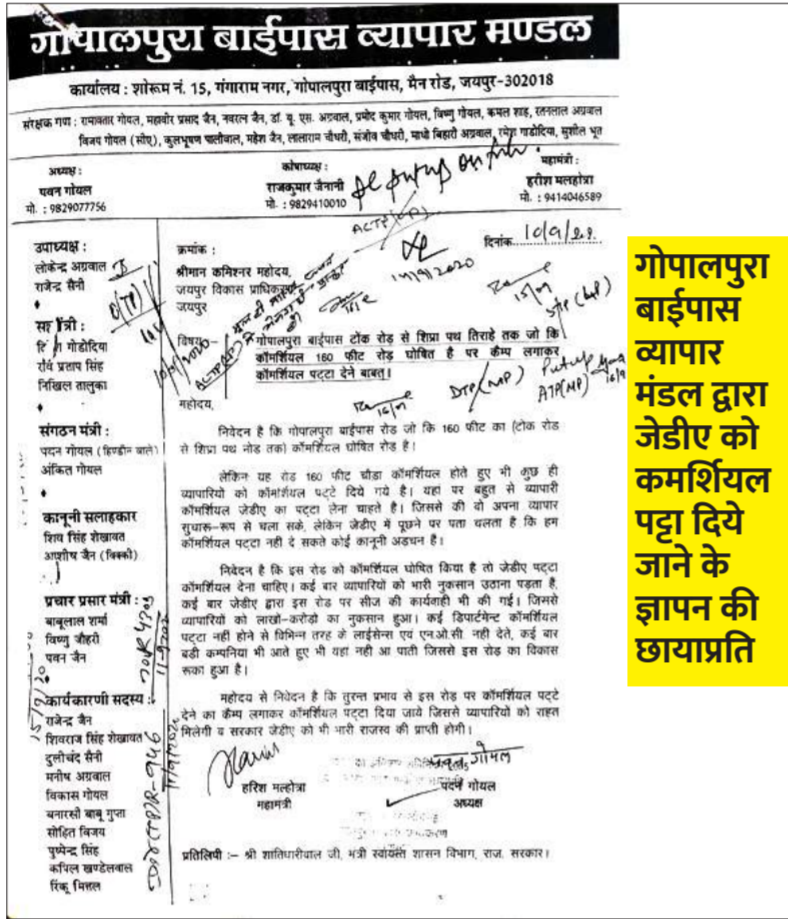 गोपालपुरा बाईपास व्यापार मण्डल
कार्यालय : शोरूम नं. 15, गंगाराम नगर, गोपालपुरा बाईपास, मैन रोड, जयपुर-302018
संरक्षक गण : रामावतार गोयल, महावीर प्रसाद जैन, नवरत्न जैन, डॉ. यू. एस. अग्रवाल, प्रमोद कुमार गोयल, विष्णु गोयल, कमल शाह, रतनलाल अग्रवाल
विजय गोयल (सीए), कुलभूषण पालीवाल, महेश जैन, लालाराम चौधरी, संजीव चौधरी, माधो बिहारी अग्रवाल, रमेश गाडोदिया, सुशील भूत
अध्यक्ष :
पवन गोयल
मो. : 9829077756
कोषाध्यक्ष :
राजकुमार जैनानी
मो. : 9829410010
महामंत्री :
हरीश मलहोत्रा
मो. : 9414046589
उपाध्यक्ष :
लोकेन्द्र अग्रवाल
राजेन्द्र सैनी
सह मंत्री :
गोडोदिया
रवि प्रताप सिंह
निखिल तालुका
संगठन मंत्री :
पदन गोयल (हिण्डौन वाले)
अंकित गोयल
कानूनी सलाहकार
शिव सिंह शेखावत
आशीष जैन (विक्की)
प्रचार प्रसार मंत्री :
बाबूलाल शर्मा
विष्णु जौहरी
पवन जैन
कार्यकारणी सदस्य :
राजेन्द्र जैन
शिवराज सिंह शेखावत
दुलीचंद सैनी
मनीष अग्रवाल
विकास गोयल
बनारसी बाबू गुप्ता
सोहित विजय
पुष्पेन्द्र सिंह
कपिल खण्डेलवाल
रिंकू मित्तल
क्रमांक :
दिनांक
श्रीमान कमिश्नर महोदय,
जयपुर विकास प्राधिकरण
जयपुर
विषय:- गोपालपुरा बाईपास टोंक रोड़ से शिप्रा पथ तिराहे तक जो कि
कॉमर्शियल 160 फीट रोड़ घोषित है पर कैम्प लगाकर
कॉमर्शियल पट्टा देने बाबत्।
महोदय,
निवेदन है कि गोपालपुरा बाईपास रोड़ जो कि 160 फीट का (टोंक रोड
से शिप्रा पथ नोड तक) कॉमर्शियल घोषित रोड़ है।
लेकिन यह रोड 160 फीट चौडा कॉमर्शियल होते हुए भी कुछ ही
व्यापारियो को कॉमर्शियल पट्टे दिये गये है। यहां पर बहुत से व्यापारी
कॉमर्शियल जेडीए का पट्टा लेना चाहते है। जिससे की वो अपना व्यापार
सुधारू-रूप से चला सकें, लेकिन जेडीए मे पूछने पर पता चलता है कि हम
कॉमर्शियल पट्टा नही दे सकते कोई कानूनी अडचन है।
निवेदन है कि इस रोड को कॉमर्शियल घोषित किया है तो जेडीए पट्टा
कॉमर्शियल देना चाहिए। कई बार व्यापारियों को भारी नुकसान उठाना पड़ता है,
कई बार जेडीए द्वारा इस रोड पर सीज की कार्यवाही भी की गई। जिससे
व्यापारियों को लाखो-करोडो का नुकसान हुआ। कई डिपार्टमेन्ट कॉमर्शियल
पट्टा नही होने से विभिन्न तरह के लाईसेन्स एवं एन.ओ.सी. नही देते, कई बार
बडी कम्पनिया भी आते हुए भी यहां नही आ पाती जिससे इस रोड का विकास
रूका हुआ है।
महोदय से निवेदन है कि तुरन्त प्रभाव से इस रोड़ पर कॉमर्शियल पट्टे
देने का कैम्प लगाकर कॉमर्शियल पट्टा दिया जाये जिससे व्यापारियों को राहत
मिलेगी व सरकार जेडीए को भी भारी राजस्व की प्राप्ती होगी।
हरिश मल्होत्रा
महामंत्री
पदन गोयल
अध्यक्ष
प्रतिलिपी :- श्री शातिधारीवाल जी, मंत्री स्वायस्त शासन विभाग, राज. सरकार।
गोपालपुरा
बाईपास
व्यापार
मंडल द्वारा
जेडीए को
कमर्शियल
पट्टा दिये
जाने के
ज्ञापन की
छायाप्रति